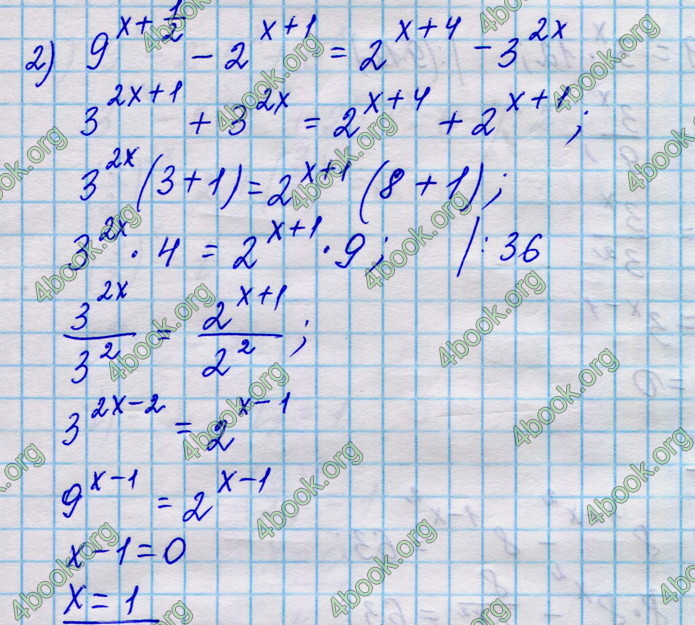 2) 9^(x+1/2) - 2^(x+1) = 2^(x+4) - 3^(2x)
3^(2x+1) + 3^(2x) = 2^(x+4) + 2^(x+1);
3^(2x) (3+1) = 2^(x+1) (8+1);
3^(2x) · 4 = 2^(x+1) · 9; /:36
3^(2x)/3^2 = 2^(x+1)/2^2;
3^(2x-2) = 2^(x-1)
9^(x-1) = 2^(x-1)
x-1=0
x=1
4book.org